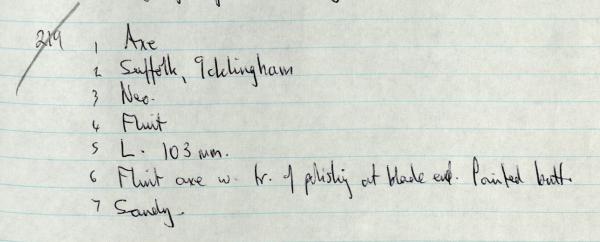 219
1 Axe
2 Suffolk, Icklingham
3 Neo.
4 Flint
5 L. 103 mm.
6 Flint axe w. tr. of polishing at blade end. Pointed butt.
7 Sandy.